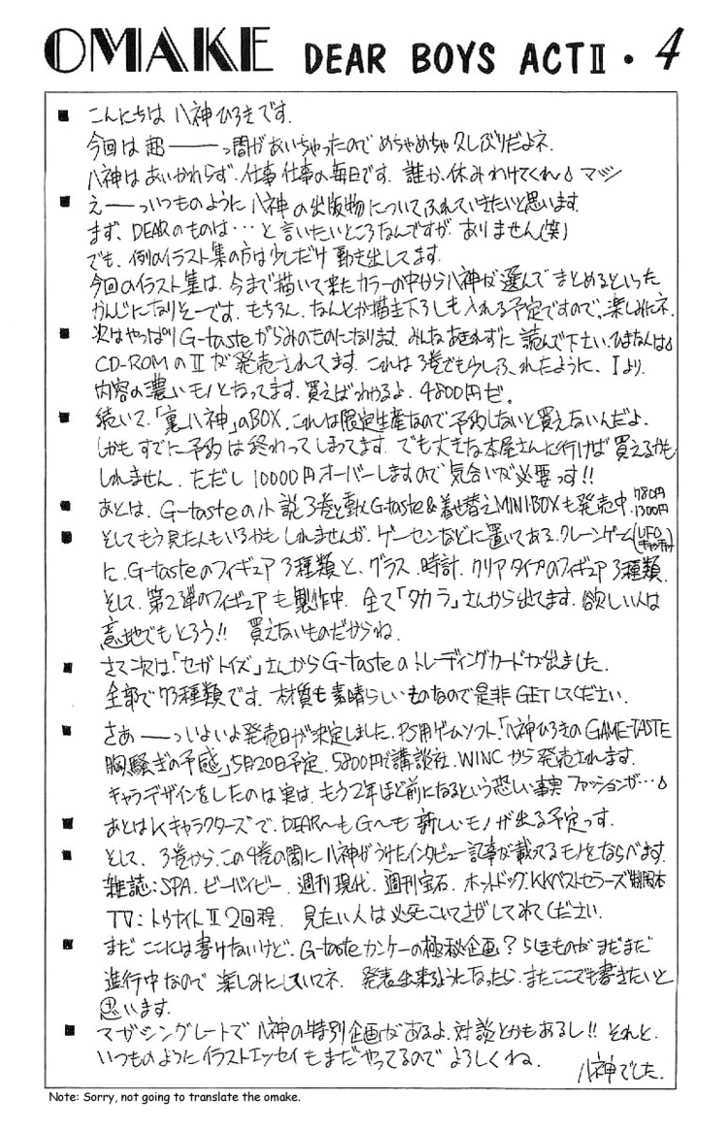 OMAKE DEAR BOYS ACTⅡ・4
■ こんにちは 八神ひろきです.
今回は超───っ間があいちゃったので めちゃめちゃ久しぶりだよネ.
八神は あいかわらず、仕事 仕事の毎日です. 誰か休みわけてくれ♪ マジ
■ え──っいつものように 八神の出版物についてふれていきたいと思います.
まず、DEARのものは…と言いたいところなんですが、ありません(笑)
でも、例のイラスト集の方は少しだけ 動き出してます.
今回のイラスト集は、今まで描いて来たカラーの中から八神が選んで まとめるといった
かんじになりそーです. もちろん、なんとか描き下ろしも入れる予定ですので、楽しみにネ.
■ 次はやっぱりG-tasteがらみのものになります. みんなあきれずに 読んで下さい.
CD-ROMのⅡが発売されてます. これは3巻でも少しふれたように、Ⅰより
内容の濃いモノとなってます. 買えばわかるよ. 4800円ゼ.
■ 続いて、「裏八神」のBOX. これは限定生産なので予約しないと買えないんだよ.
しかも すでに予約は終わってしまってます. でも大きな本屋さんに行けば 買えるかも
しれません. ただし 10000円オーバーしますので 気合いが必要っす!!
■ あとは、G-tasteの小説3巻と動くG-taste&着せ替えMINIBOXも発売中. 780円 1300円
■ そしてもう見た人もいるかも しれませんが、ゲーセンなどに置いてある、クレーンゲーム(UFOキャッチャー)
に、G-tasteのフィギュア3種類と、グラス、時計、クリアタイプのフィギュア3種類.
そして、第2弾のフィギュアも製作中. 全て「タカラ」さんから出てます. 欲しい人は
意地でもとろう!! 買えないものだからね.
■ さて次は、「セガトイズ」さんからG-tasteのトレーディングカードが出ました.
全部で73種類です. 材質も素晴らしいものなので是非GETしてください.
■ さあ───っいよいよ発売日が決定しました. PS用ゲームソフト、「八神ひろきのGAME-TASTE
胸騒ぎの予感」5月20日予定. 5800円で講談社. WINCから発売されます.
キャラデザインをしたのは実は、もう2年ほど前になるという恐しい事実 ファッションが…♪
■ あとはKキャラクターズで、DEAR〜もG〜も 新しいモノが出る予定っす.
■ そして、3巻から、この4巻の間に八神がうけたインタビュー記事が載ってるモノをならべます.
雑誌:SPA. ビーバイビー. 週刊現代. 週刊宝石. ホットドッグ. KKベストセラーズ
TV:トゥナイトⅡ 2回程. 見たい人は必死こいてさがしてみてください.
■ まだここには書けないけど、G-tasteカンケーの極秘企画?らしきものが まだまだ
進行中なので 楽しみにしていてネ. 発表出来るようになったら、またここでも書きたいと
思います.
■ マガジングレートで 八神の特別企画があるよ. 対談とかもあるし!! それと、
いつものようにイラストエッセイもまだやってるので よろしくね.
八神でした.
Note: Sorry, not going to translate the omake.